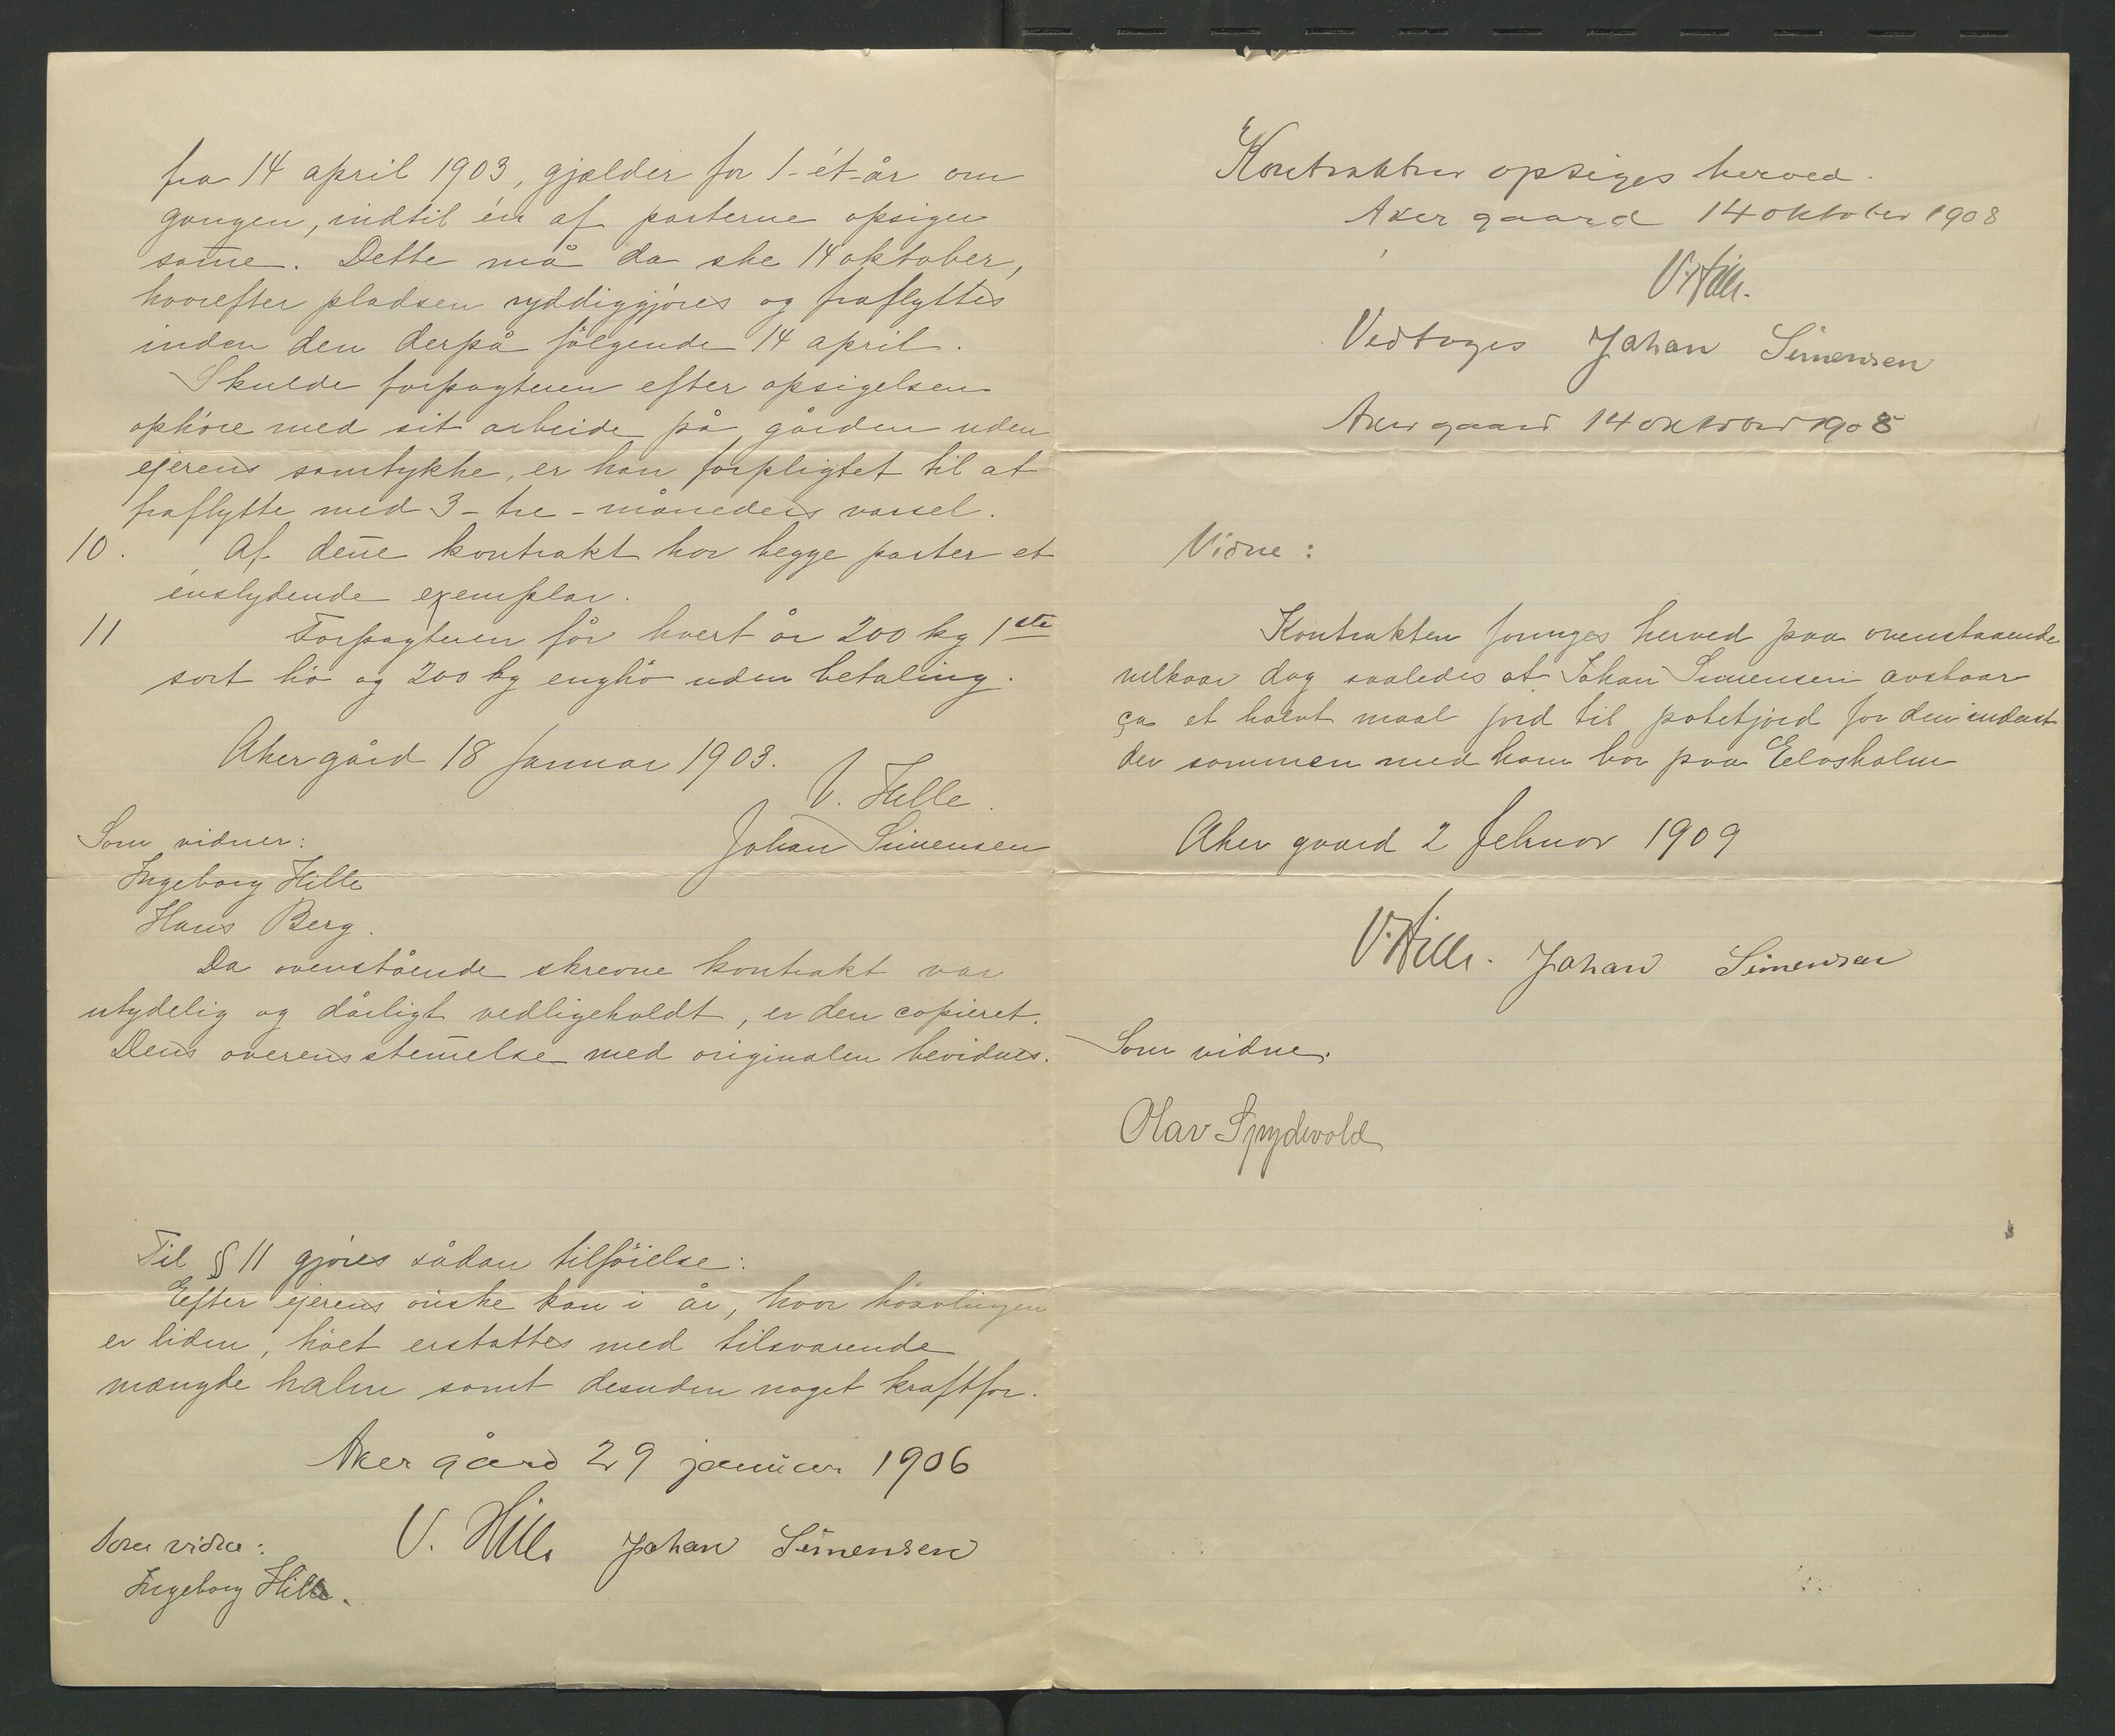 fra 14 april 1903, gjælder for 1-ét-år om
gangen, indtil én af parterne opsiger
sam̅e. Dette må da ske 14 oktober,
hvorefter pladsen ryddiggjøres og fraflyttes
inden den derpå følgende 14 april.
Skulde forpagteren efter opsigelsen
ophøre med sit arbeide på gården uden
ejerens samtykke, er han forpligtet til at
fraflytte med 3-tre-måneders varsel.
10. Af den̅e kontrakt har begge parter et
enslydende exemplar.
11 Forpagteren får hvert år 200 kg 1ste
sort hø og 200 kg enghø uden betaling.
Aker gård 18 Januar 1903.
V. Hille.
Johan Simensen
Som vidner:
Ingeborg Hille
Hans Berg.
Da ovenstående skrevne kontrakt var
utydelig og dårligt vedligeholdt, er den copieret.
Dens overensstem̅else med originalen bevidnes.
Til § 11 gjøres sådan tilføielse:
Efter ejerens ønske kan i år, hvor høavlingen
er liden, høet erstattes med tilsvarende
mængde halm samt desuden noget kraftfor.
Aker gård 29 januar 1906
V. Hille Johan Simensen
Som vidne:
Ingeborg Hille.
Kontrakten opsiges herved.
Aker gaard 14 oktober 1908
V. Hille.
Vedtages Johan Simensen
Aker gaard 14 oktober 1908
Vidne:
Kontrakten fornyes herved paa ovenstaaende
vilkaar dog saaledes at Johan Simensen avstaar
ca et halvt maal jord til potetjord for den inderst
der sammen med ham bor paa Elvsholm
Aker gaard 2 februar 1909
V. Hille. Johan Simensen
Som vidne.
Olav Spydevold